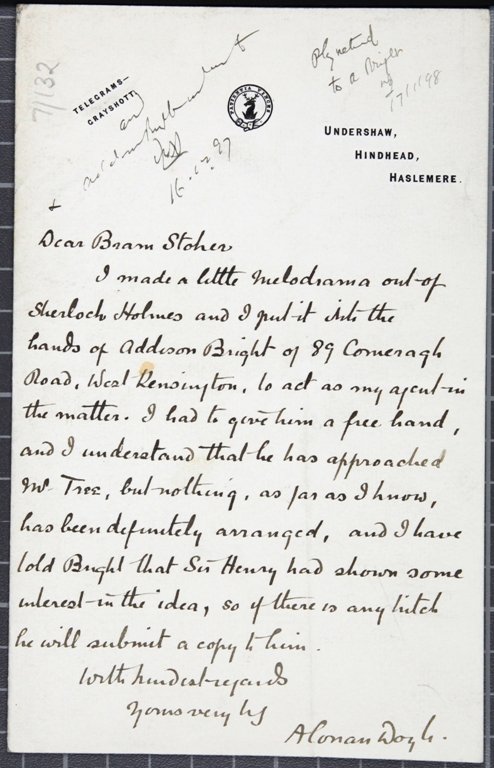 7/132
TELEGRAMS—
GRAYSHOTT.
16.12.97
to a Bright
17/1/98
UNDERSHAW,
HINDHEAD,
HASLEMERE.
Dear Bram Stoker
I made a little melodrama out of
Sherlock Holmes and I put it into the
hands of Addison Bright of 89 Comeragh
Road, West Kensington, to act as my agent in
the matter. I had to give him a free hand,
and I understand that he has approached
Mr Tree, but nothing, as far as I know,
has been definitely arranged, and I have
told Bright that Sir Henry had shown some
interest in the idea, so if there is any hitch
he will submit a copy to him.
With kindest regards
Yours very truly
A Conan Doyle.